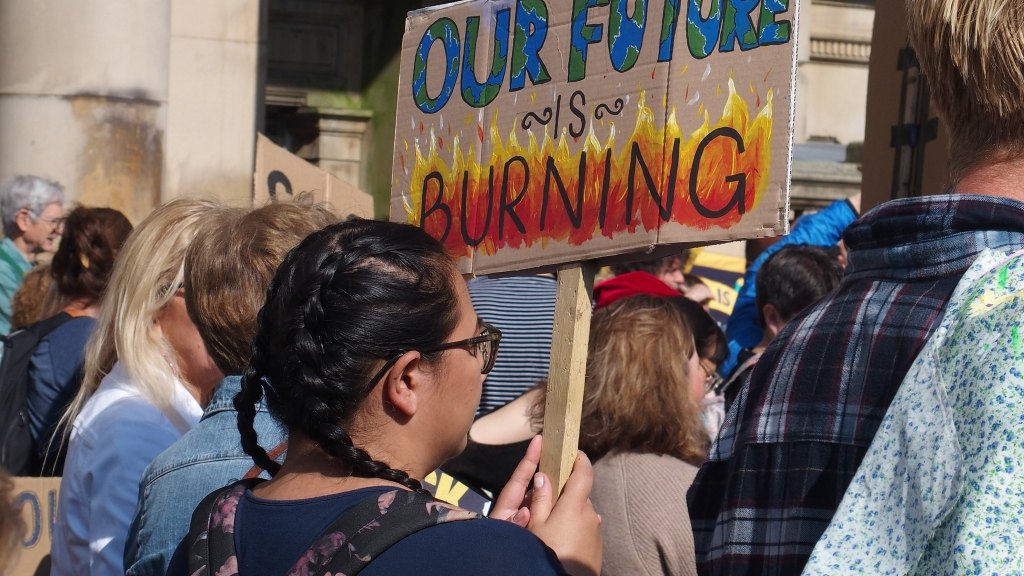 OUR FUTURE
IS
BURNING
IS